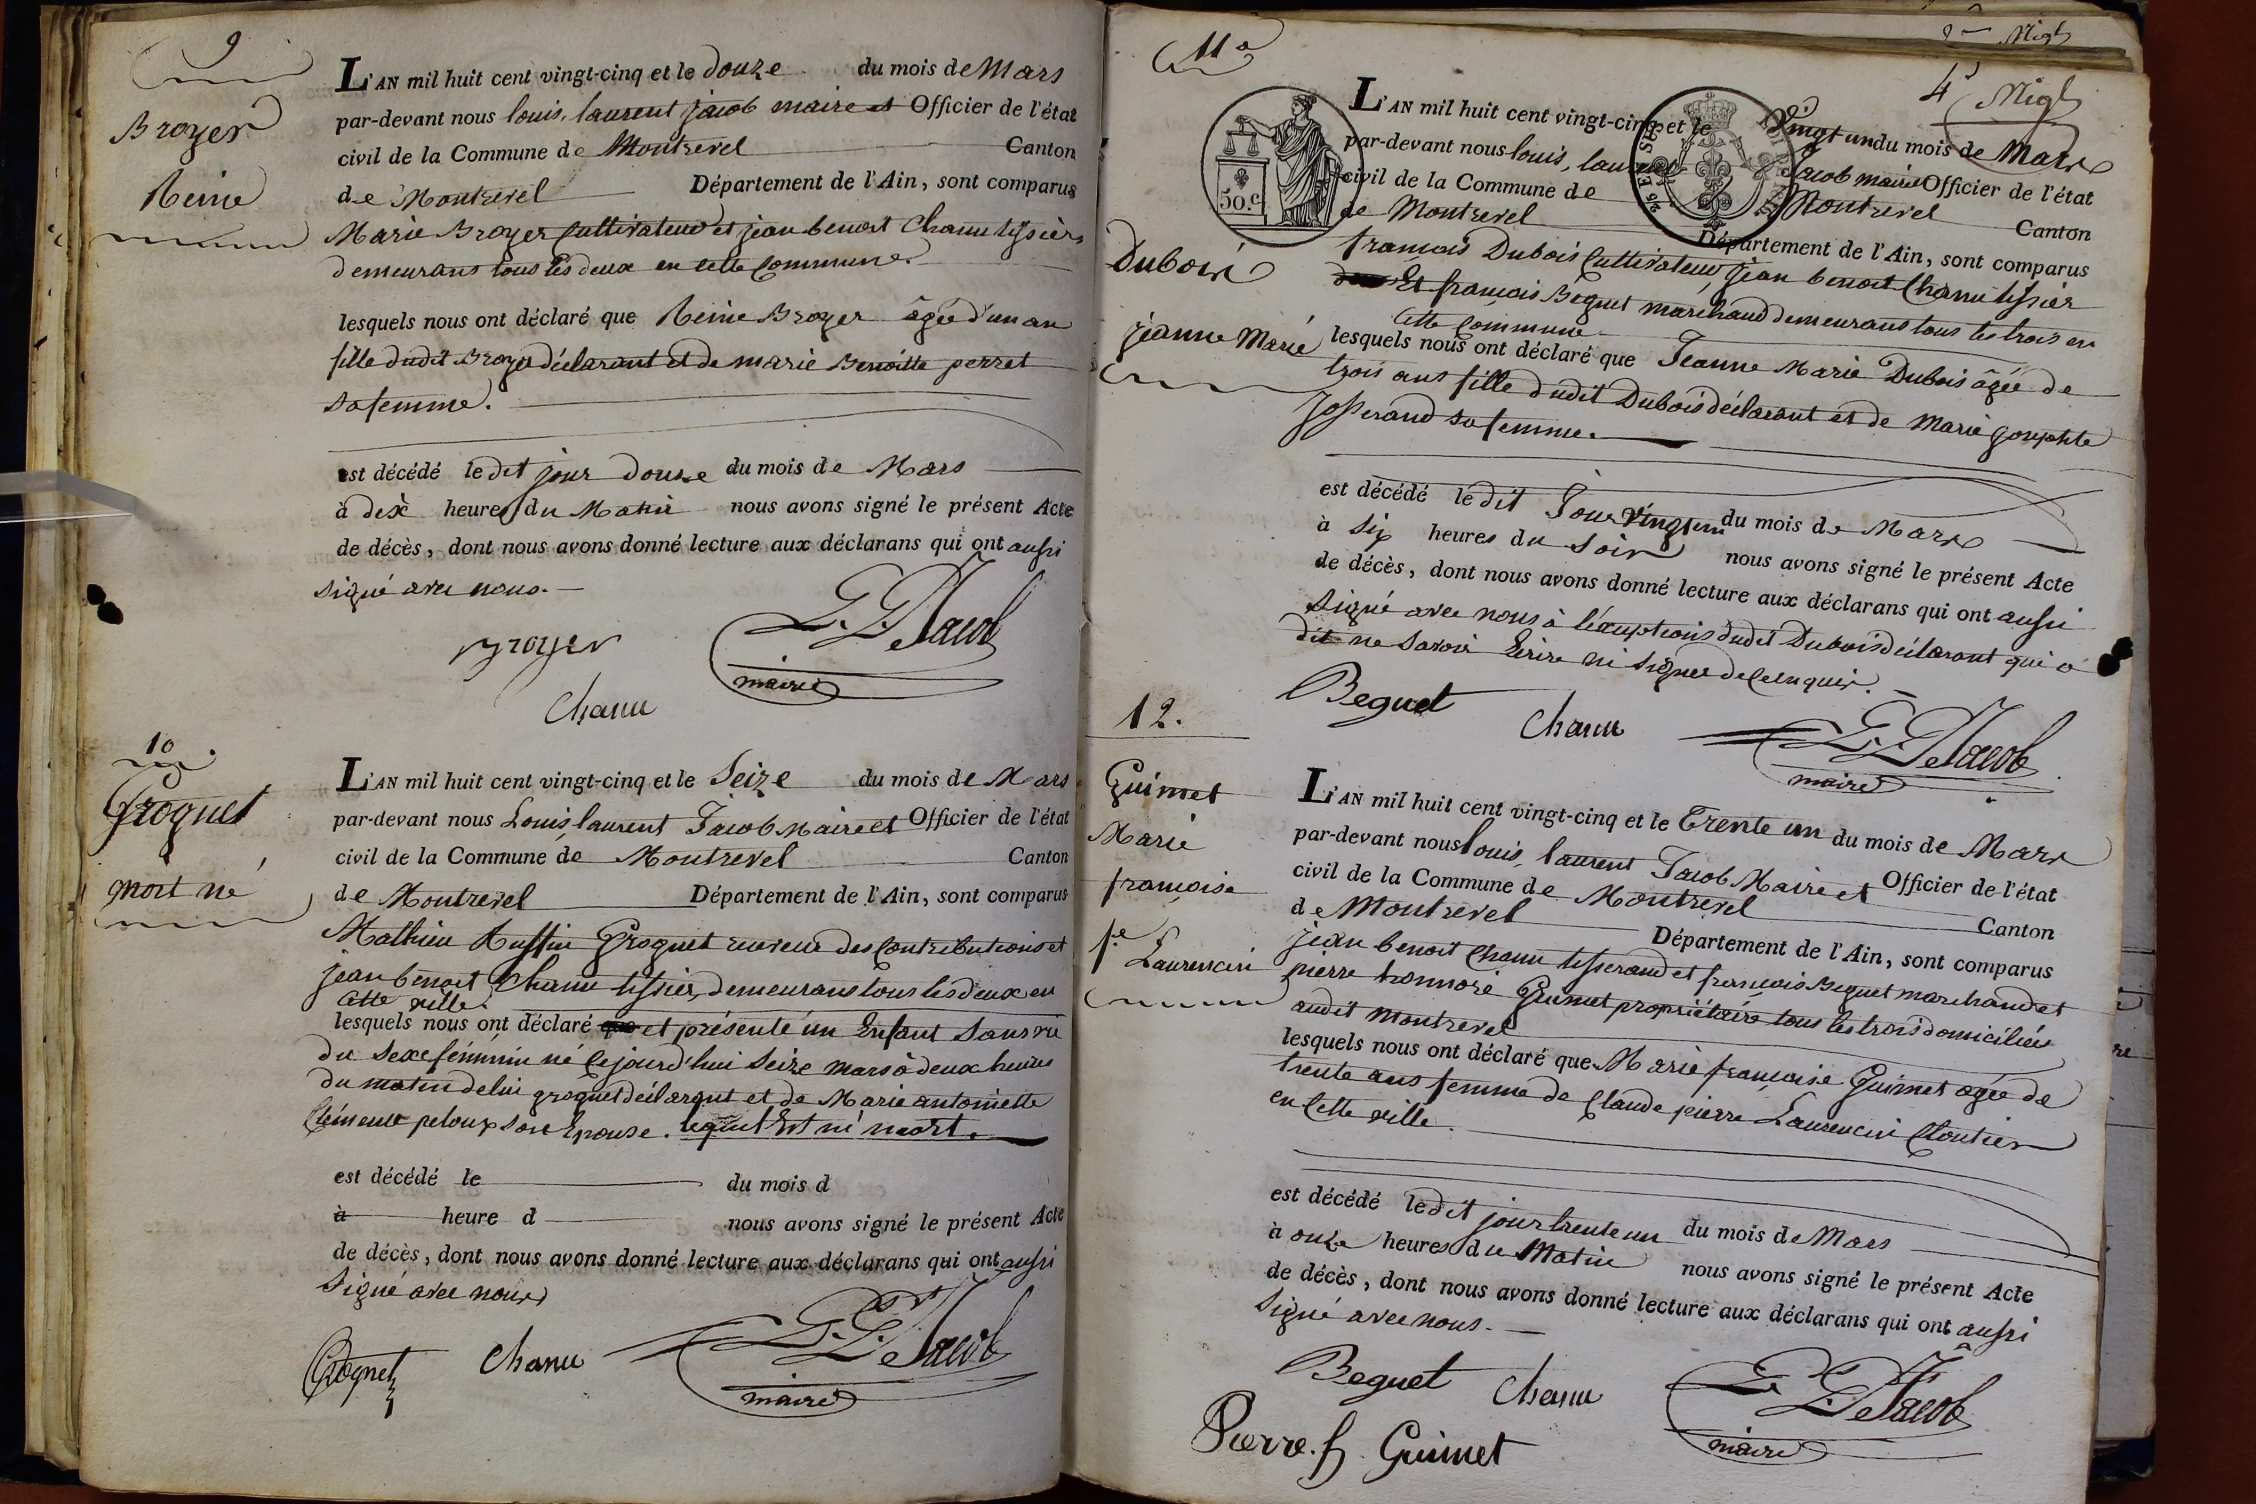 9
Broyer
Reine
L'AN mil huit cent vingt-cinq et le douze du mois de Mars
par-devant nous louis, laurent jacob maire et Officier de l'état
civil de la Commune de Montrevel Canton
de Montrevel Département de l'Ain, sont comparus
Marie Broyer Cultivateur et jean benoit Chanu tissier
demeurans tous les deux en cette Commune.
lesquels nous ont déclaré que Reine Broyer âgée d'un an
fille dudit Broyer déclarant et de marie Benoitte perret
sa femme.
est décédé le dit jour douze du mois de Mars
à dix heures du Matin nous avons signé le présent Acte
de décès, dont nous avons donné lecture aux déclarans qui ont aussi
signé avec nous.
Broyer
L. L. Jacob
maire
Chanu
10.
Grognet
mort né
L'AN mil huit cent vingt-cinq et le Seize du mois de Mars
par-devant nous Louis, laurent Jacob Maire et Officier de l'état
civil de la Commune de Montrevel Canton
de Montrevel Département de l'Ain, sont comparus
Mathieu Ruffin Grognet receveur des Contributions et
jean benoit Chanu tissier, demeurans tous les deux en
Cette ville.
lesquels nous ont déclaré que et présenté un Enfant Sans vie
du Sexe féminin né Cejourd'hui Seize mars à deux heures
du matin de lui grognet déclarant et de Marie antoinette
Clémence peloux son Epouse. lequel Est né mort.
est décédé le du mois d
à heure d nous avons signé le présent Acte
de décès, dont nous avons donné lecture aux déclarans qui ont aussi
Signé avec nous
Grognet
Chanu
L. L. Jacob
maire
2e Migl
11e
4e Migl
50.c
Dubois
jeanne Marie
L'AN mil huit cent vingt-cinq et le Vingt un du mois de Mars
par-devant nous louis, laurent Jacob maire Officier de l'état
civil de la Commune de Montrevel Canton
de Montrevel Département de l'Ain, sont comparus
francois Dubois Cultivateur, jean benoit Chanu tissier
Et françois Beguet marchand demeurans tous les trois en
Cette Commune
lesquels nous ont déclaré que Jeanne Marie Dubois âgée de
trois ans fille dudit Dubois déclarant et de Marie josephte
Josserand sa femme.
est décédé le dit Jour Vingt un du mois de Mars
à Six heures du Soir nous avons signé le présent Acte
de décès, dont nous avons donné lecture aux déclarans qui ont aussi
signé avec nous à l'éxeption dudit Dubois déclarant qui a
dit ne Savoir Ecrire ni Signer de Ce enquis.
Beguet
Chanu
L. L. Jacob
maire
12.
Guimet
Marie
françoise
fe Laurencin
L'AN mil huit cent vingt-cinq et le Trente un du mois de Mars
par-devant nous louis, laurent Jacob Maire et Officier de l'état
civil de la Commune de Montrevel Canton
de Montrevel Département de l'Ain, sont comparus
jean benoit Chanu tisserand et françois Beguet marchand et
pierre honnoré Guimet propriétaire tous les trois domiciliés
audit Montrevel
lesquels nous ont déclaré que Marie françoise Guimet agée de
trente ans femme de Claude pierre Laurencin Cloutier
en Cette ville.
est décédé le dit jour trente un du mois de Mars
à onze heures du Matin nous avons signé le présent Acte
de décès, dont nous avons donné lecture aux déclarans qui ont aussi
Signé avec nous.
Beguet
Chanu
L. L. Jacob
maire
Pierre. h Guimet